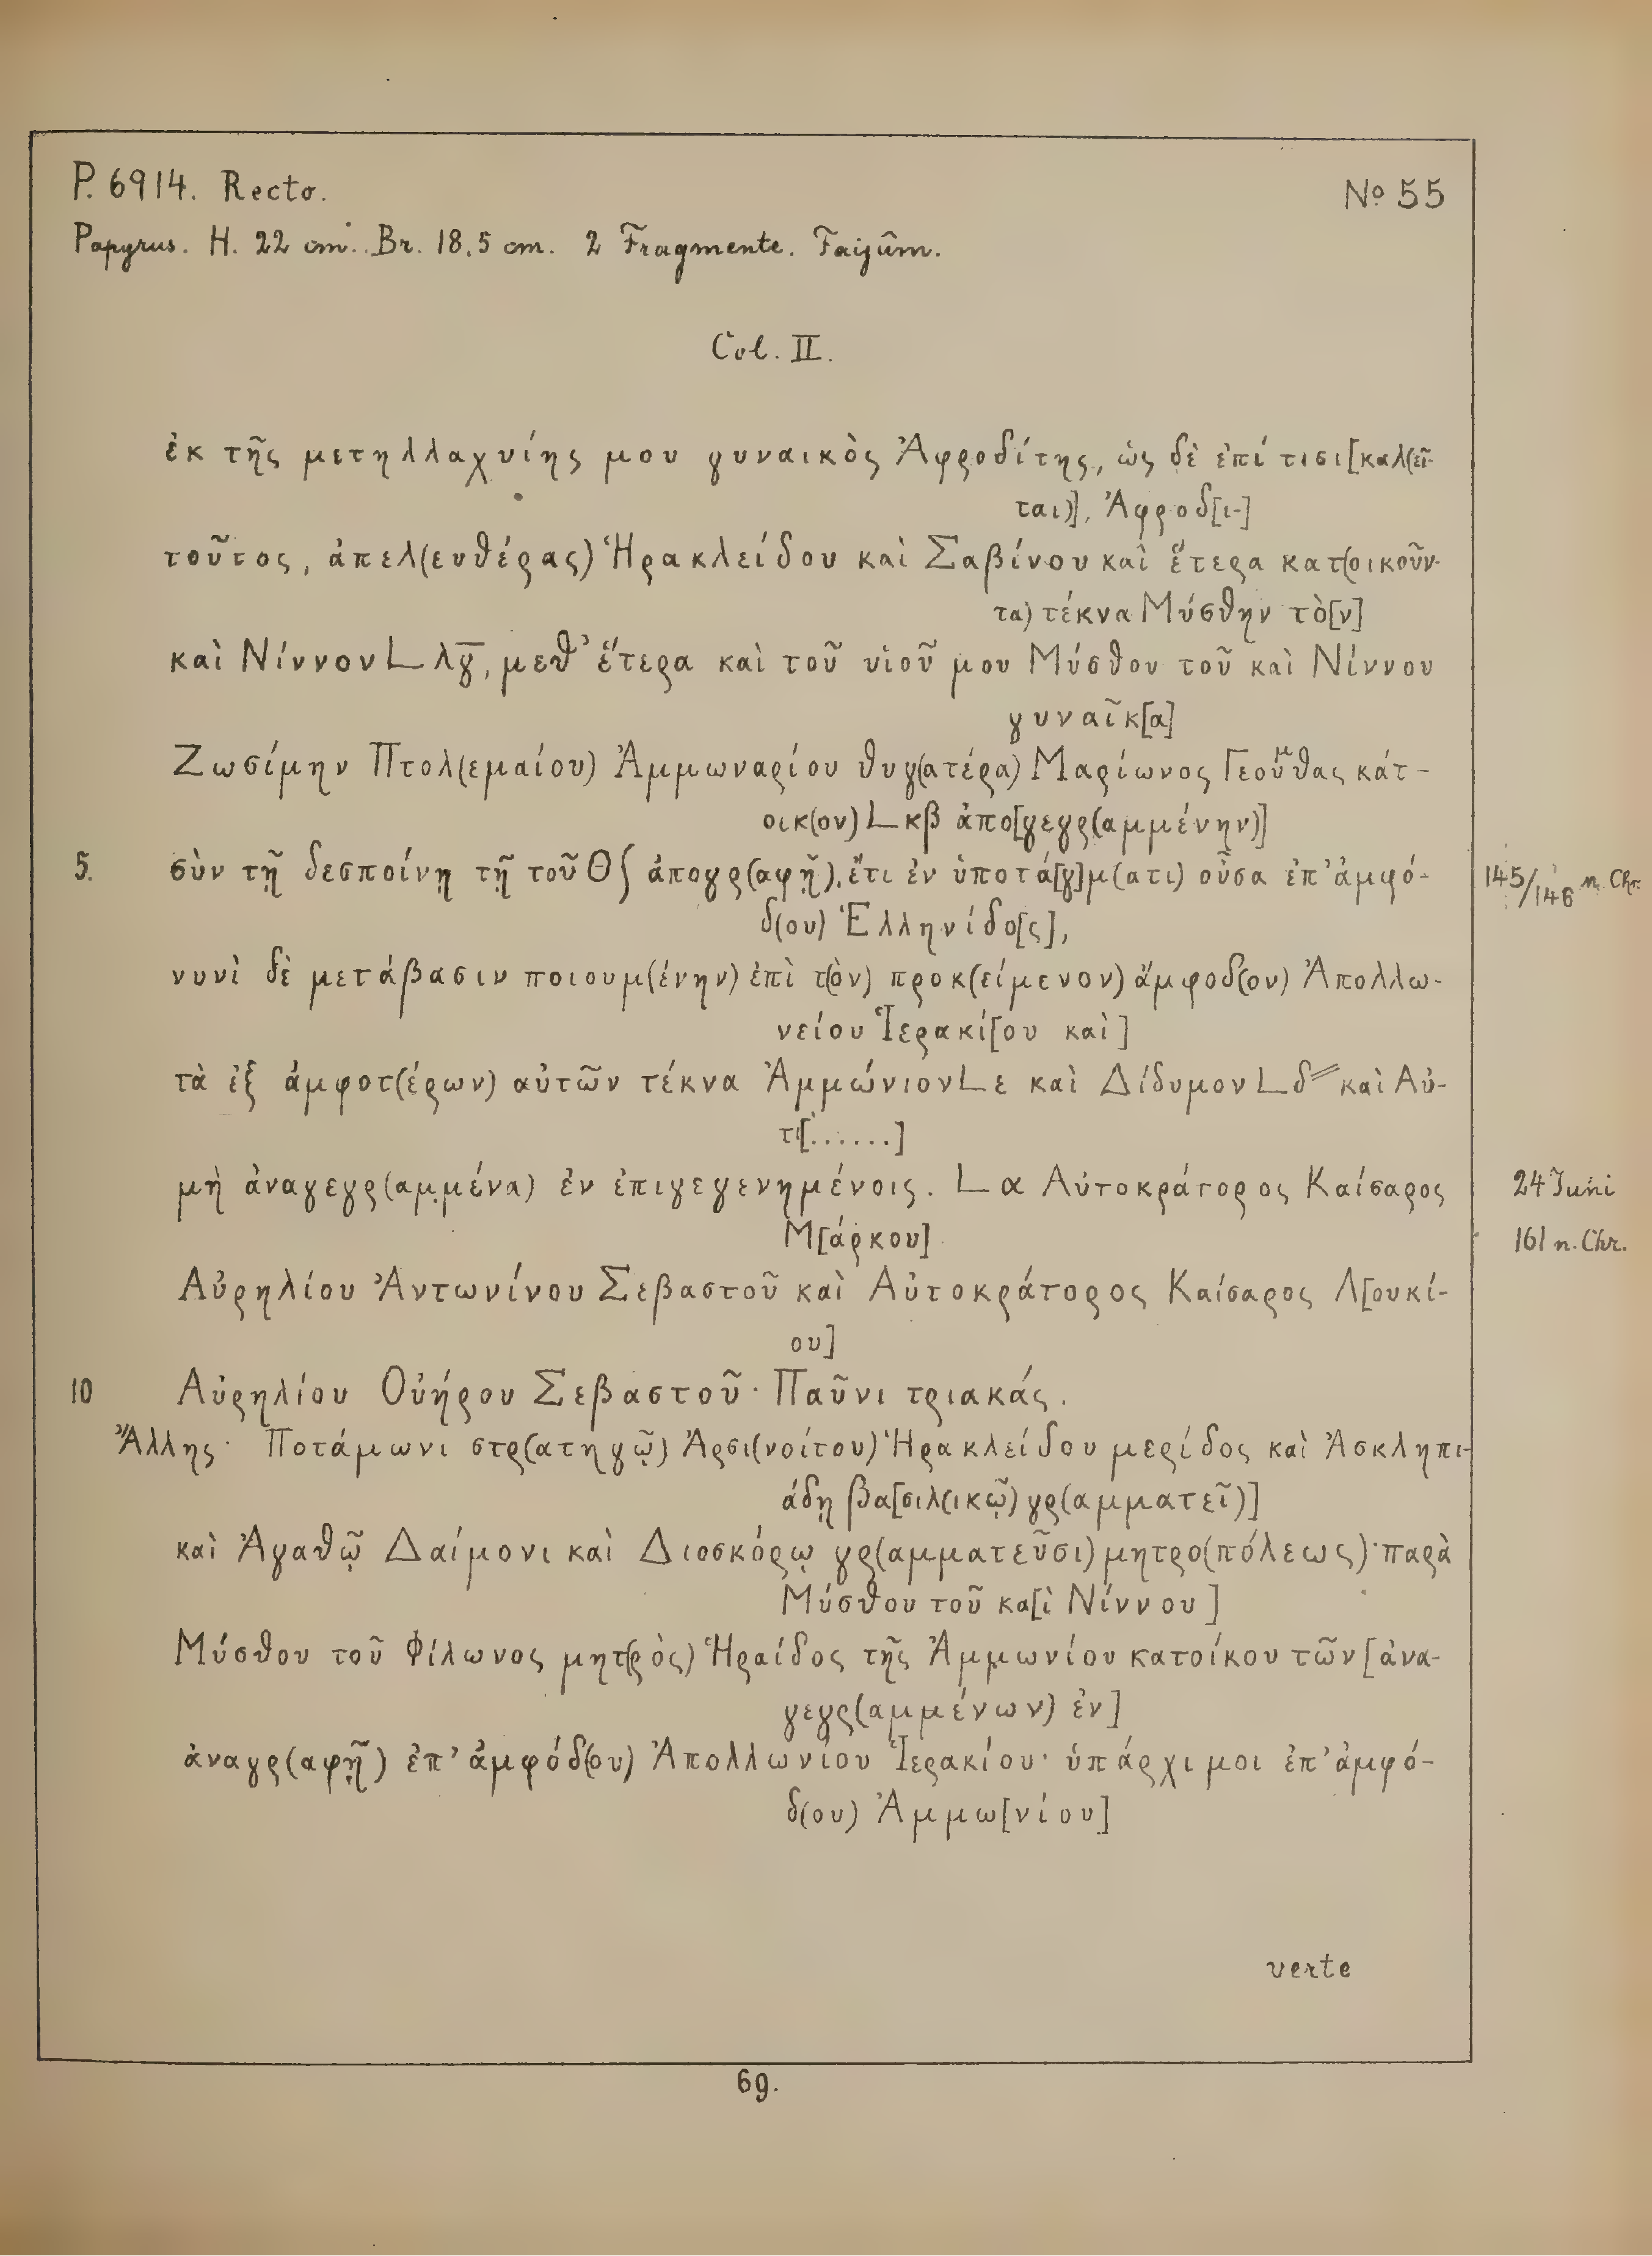 P. 6914. Recto.
No 55
Papyrus. H. 22 cm. Br. 18,5 cm. 2 Fragmente. Faijûm.
Col. II.
ἐκ τῆς μετηλλαχυίης μου γυναικὸς Ἀφροδίτης, ὡς δὲ ἐπί τισι[καλ(εῖ-
ται)], Ἀφροδ[ι-]
τοῦτος, ἀπελ(ευθέρας) Ἡρακλείδου καὶ Σαβίνου καὶ ἕτερα κατ(οικοῦν-
τα) τέκνα Μύσθην τὸ[ν]
καὶ Νίννον L λγ̅, μεθ' ἕτερα καὶ τοῦ υἱοῦ μου Μύσθου τοῦ καὶ Νίννου
γυναῖκ[α]
Ζωσίμην Πτολ(εμαίου) Ἀμμωναρίου θυγ(ατέρα) Μαρίωνος Γεού\μ/θας κάτ-
οικ(ον) L κβ ἀπο[γεγρ(αμμένην)]
5. σὺν τῇ δεσποίνῃ τῇ τοῦ Θ∫ ἀπογρ(αφῇ), ἔτι ἐν ὑποτά[γ]μ(ατι) οὖσα ἐπ' ἀμφό-
δ(ου) Ἑλληνίδο[ς],
145/146 n. Chr.
νυνὶ δὲ μετάβασιν ποιουμ(ένην) ἐπὶ τ(ὸν) προκ(είμενον) ἄμφοδ(ον) Ἀπολλω-
νείου Ἱερακί[ου καὶ]
τὰ ἐξ ἀμφοτ(έρων) αὐτῶν τέκνα Ἀμμώνιον L ε καὶ Δίδυμον L δ⸗ καὶ Αὐ-
τι[......]
μὴ ἀναγεγρ(αμμένα) ἐν ἐπιγεγενημένοις. L α Αὐτοκράτορος Καίσαρος
Μ[άρκου]
24 Juni
161 n. Chr.
Αὐρηλίου Ἀντωνίνου Σεβαστοῦ καὶ Αὐτοκράτορος Καίσαρος Λ[ουκί-
ου]
10 Αὐρηλίου Οὐήρου Σεβαστοῦ· Παῦνι τριακάς.
Ἄλλης· Ποτάμωνι στρ(ατηγῷ) Ἀρσι(νοίτου) Ἡρακλείδου μερίδος καὶ Ἀσκληπι-
άδῃ βα[σιλ(ικῷ) γρ(αμματεῖ)]
καὶ Ἀγαθῷ Δαίμονι καὶ Διοσκόρῳ γρ(αμματεῦσι) μητρο(πόλεως)· παρὰ
Μύσθου τοῦ κα[ὶ Νίννου]
Μύσθου τοῦ Φίλωνος μητ(ρὸς) Ἡραίδος τῆς Ἀμμωνίου κατοίκου τῶν [ἀνα-
γεγρ(αμμένων) ἐν]
ἀναγρ(αφῇ) ἐπ' ἀμφόδ(ου) Ἀπολλωνίου Ἱερακίου· ὑπάρχι μοι ἐπ' ἀμφό-
δ(ου) Ἀμμω[νίου]
verte
69.